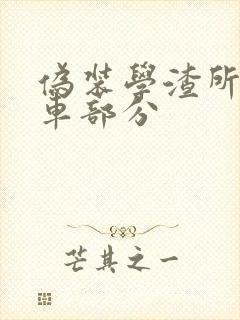 偽裝學渣所
車部分
芒其之一